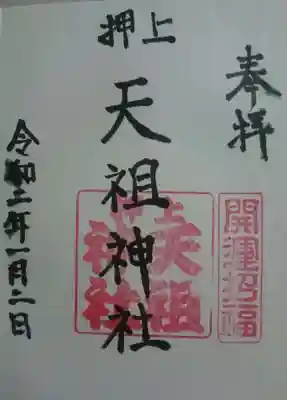 奉拝
開運招福
押上
天祖神社
押上天祖神社
令和二年一月二日